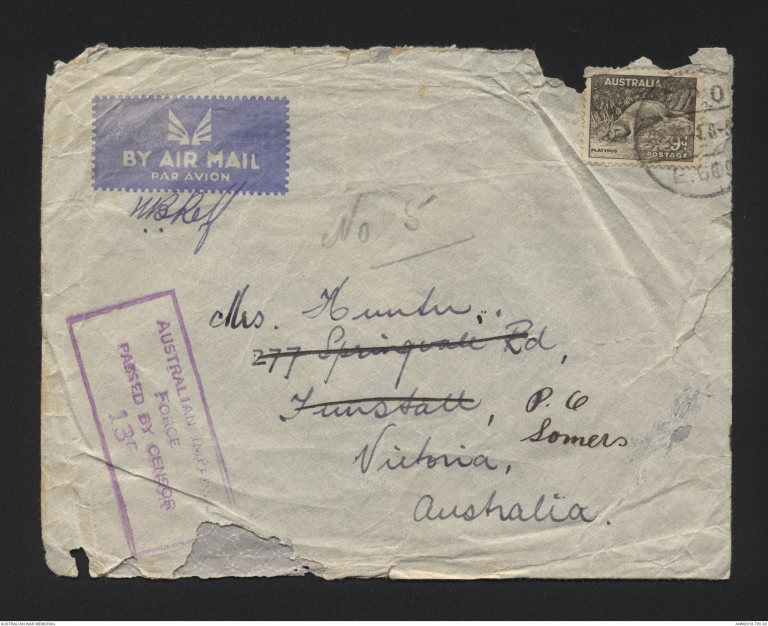 BY AIR MAIL
PAR AVION
AUSTRALIA
PLATYPUS
9D
POSTAGE
No 5
Mrs. Hunter.
277 Springvale Rd,
Tunstall, P.O
Somers
Victoria,
Australia.
AUSTRALIAN IMPE
FORCE
PASSED BY CENSOR
135
AUSTRALIAN WAR MEMORIAL